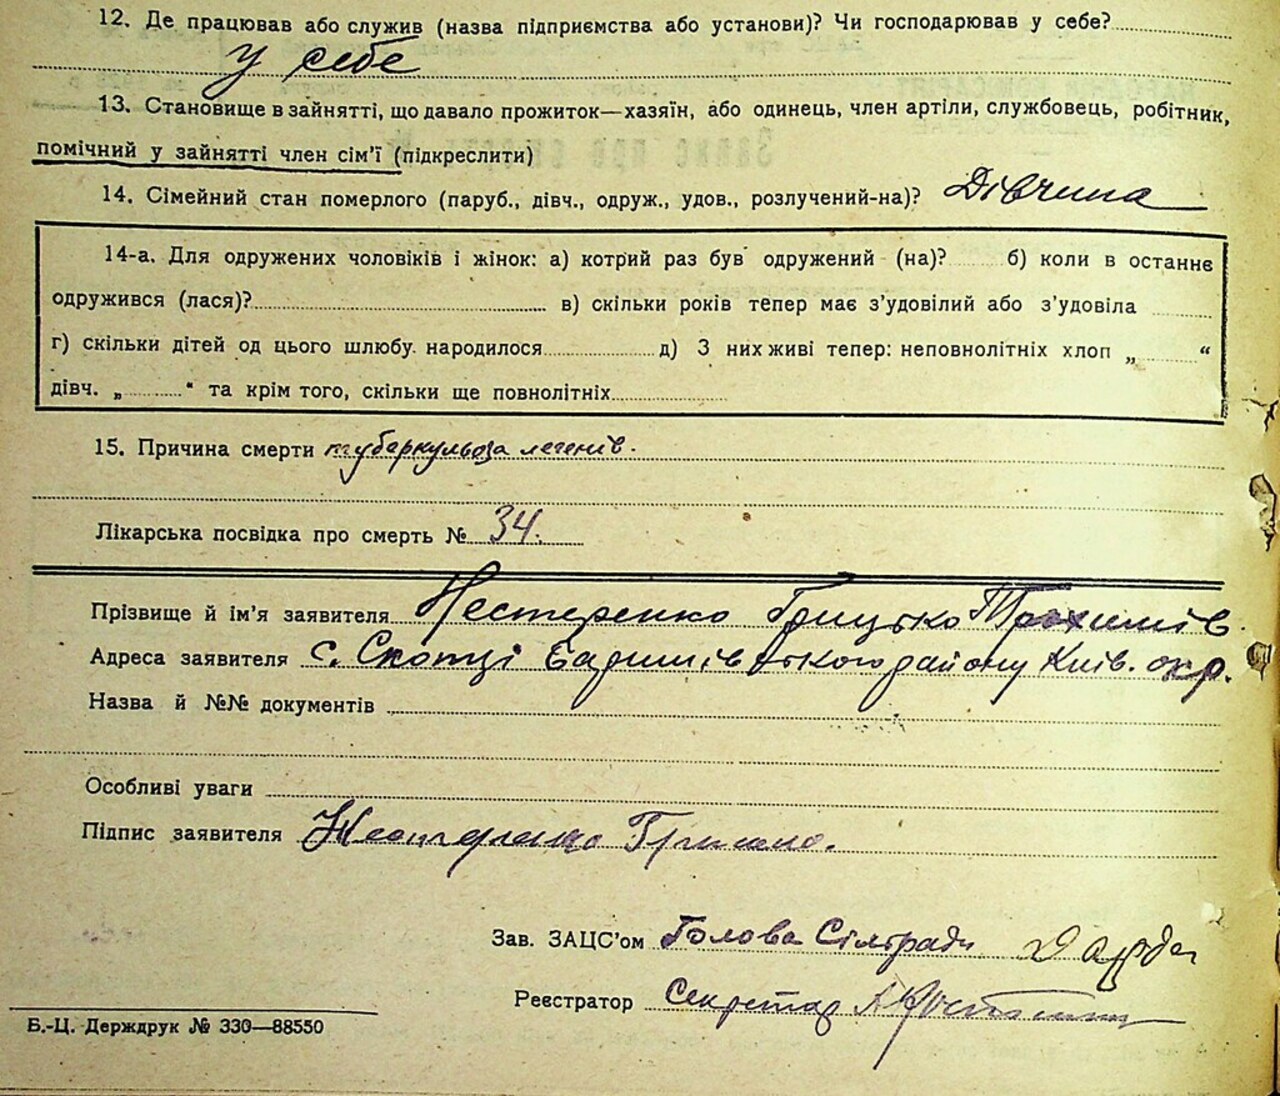 12. Де працював або служив (назва підприємства або установи)? Чи господарював у себе?
у себе
13. Становище в зайнятті, що давало прожиток—хазяїн, або одинець, член артіли, службовець, робітник,
помічний у зайнятті член сім'ї (підкреслити)
14. Сімейний стан померлого (паруб., дівч., одруж., удов., розлучений-на)? Дівчина
14-а. Для одружених чоловіків і жінок: а) котрий раз був одружений (на)? б) коли в останнє
одружився (лася)? в) скільки років тепер має з'удовілий або з'удовіла
г) скільки дітей од цього шлюбу народилося д) З них живі тепер: неповнолітніх хлоп „ “
дівч. „ “ та крім того, скільки ще повнолітніх
15. Причина смерти туберкульоза легенів.
Лікарська посвідка про смерть № 34.
Прізвище й ім'я заявителя Нестеренко Грицько Трохимів
Адреса заявителя с. Скопці Баришівського району Київ. окр.
Назва й №№ документів
Особливі уваги
Підпис заявителя Нестеренко
Зав. ЗАЦС'ом Голова Сільради
Реєстратор Секретар
Б.-Ц. Держдрук № 330—88550